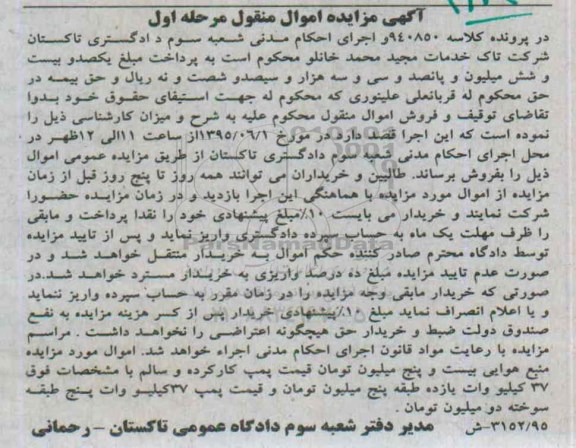 آگهی مزایده اموال منقول مرحله اول
در پرونده کلاسه ۹۴۰۸۵۰و اجرای احکام مدنی شعبه سوم دادگستری تاکستان
شرکت تاک خدمات مجید محمد خانلو محکوم است به پرداخت مبلغ یکصدو بیست
و شش میلیون و پانصد و سی و سه هزار و سیصدو شصت و نه ریال و حق بیمه در
حق محکوم له قربانعلی علینوری که محکوم له جهت استیفای حقوق خود بدوا
تقاضای توقیف و فروش اموال منقول محکوم علیه به شرح و میزان کارشناسی ذیل را
نموده است که این اجرا قصد دارد در مورخ ۱۳۹۵/۰۶/۱از ساعت ۱۱الی ۱۲ظهر در
محل اجرای احکام مدنی شعبه سوم دادگستری تاکستان از طریق مزایده عمومی اموال
ذیل را بفروش برساند. طالبین و خریداران می توانند همه روز تا پنج روز قبل از زمان
مزایده از اموال مورد مزایده با هماهنگی این اجرا بازدید و در زمان مزایده حضورا
شرکت نمایند و خریدار می بایست ۱۰٪مبلغ پیشنهادی خود را نقدا پرداخت و مابقی
را ظرف مهلت یک ماه به حساب سپرده دادگستری واریز نماید و پس از تایید مزایده
توسط دادگاه محترم صادر کننده حکم اموال به خریدار منتقل خواهد شد و در
صورت عدم تایید مزایده مبلغ ده درصد واریزی به خریدار مسترد خواهد شد.در
صورتی که خریدار مابقی وجه مزایده را در زمان مقرر به حساب سپرده واریز ننماید
و یا اعلام انصراف نماید مبلغ ۱۰٪پیشنهادی خریدار پس از کسر هزینه مزایده به نفع
صندوق دولت ضبط و خریدار حق هیچگونه اعتراضی را نخواهد داشت . مراسم
مزایده با رعایت مواد قانون اجرای احکام مدنی اجراء خواهد شد. اموال مورد مزایده
منبع هوایی بیست و پنج میلیون تومان قیمت پمپ کارکرده و سالم با مشخصات فوق
۳۷ کیلیو وات یازده طبقه پنج میلیون تومان و قیمت پمپ ۳۷کیلیو وات پنج طبقه
سوخته دو میلیون تومان .
۳۱۵۲/۹۵-ش مدیر دفتر شعبه سوم دادگاه عمومی تاکستان - رحمانی
ParsNamadData